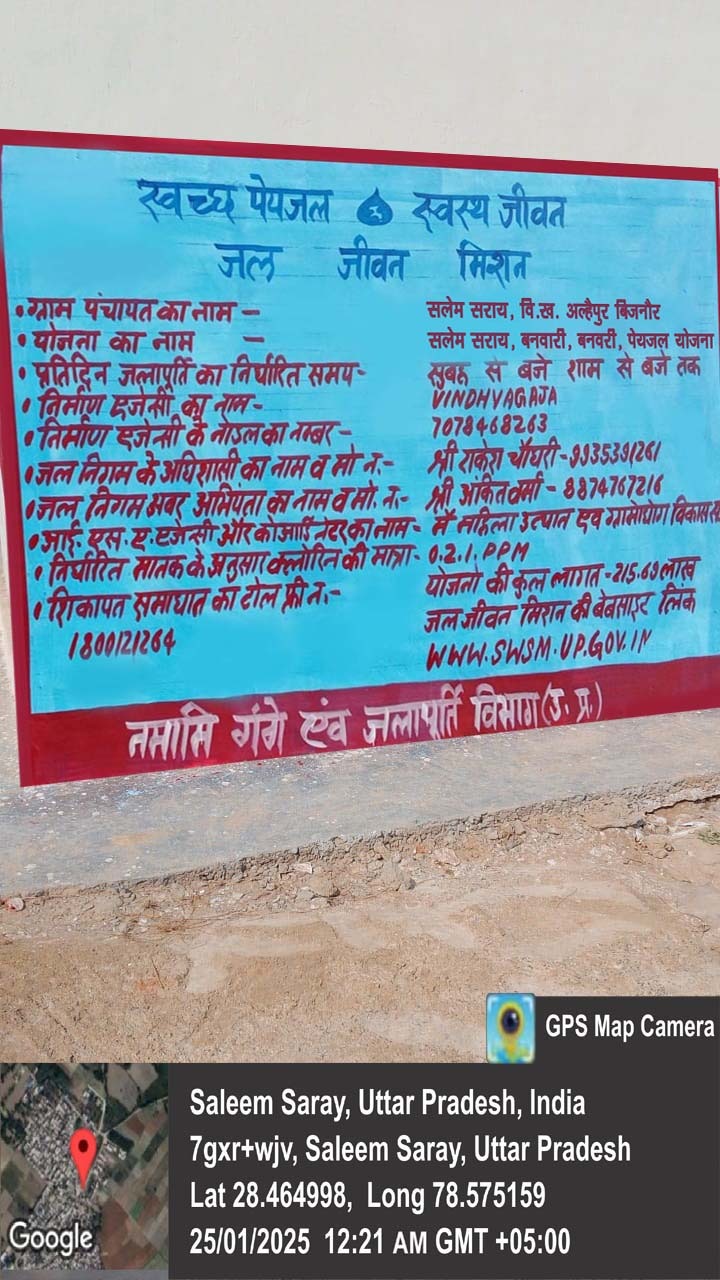 स्वच्छ पेयजल स्वस्थ जीवन
जल जीवन मिशन
• ग्राम पंचायत का नाम – सलेम सराय, वि.ख. अल्हैपुर बिजनौर
• योजना का नाम – सलेम सराय, बनवारी, बनवरी, पेयजल योजना
• प्रतिदिन जलापूर्ति का निर्धारित समय- सुबह से बजे शाम से बजे तक
• निर्माण एजेन्सी का नाम- VINDHYAGAJA
• निर्माण एजेन्सी के नोडल का नम्बर- 7078468263
• जल निगम के अधिशासी का नाम व मो न.- श्री राकेश चौधरी-9935391261
• जल निगम अवर अभियंता का नाम व मो. न.- श्री अंकित वर्मा - 8874767216
• आई. एस. ए. एजेन्सी और कोआर्डिनेटर का नाम- मै महिला उत्थान एंव ग्रामोधोग विकास
• निर्धारित मानक के अनुसार क्लोरिन की मात्रा- 0.2.1.PPM
• शिकायत समाधात का टोल फ्री न.- योजना की कुल लागत-215.69 लाख
1800121264 जल जीवन मिशन की बेबसाइट लिंक
WWW.SWSM.UP.GOV.IN
नमामि गंगे एंव जलापूर्ति विभाग (उ. प्र.)
GPS Map Camera
Saleem Saray, Uttar Pradesh, India
7gxr+wjv, Saleem Saray, Uttar Pradesh
Lat 28.464998, Long 78.575159
25/01/2025 12:21 AM GMT +05:00
Google